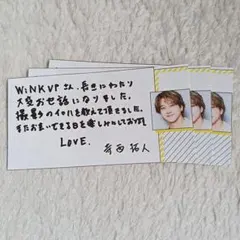 WiNKUPさん、長きにわたり
大変お世話になりました。
撮影のイロハを教えて頂きました。
またお会いできる日を楽しみにしております。
LOVE. 寺西拓人